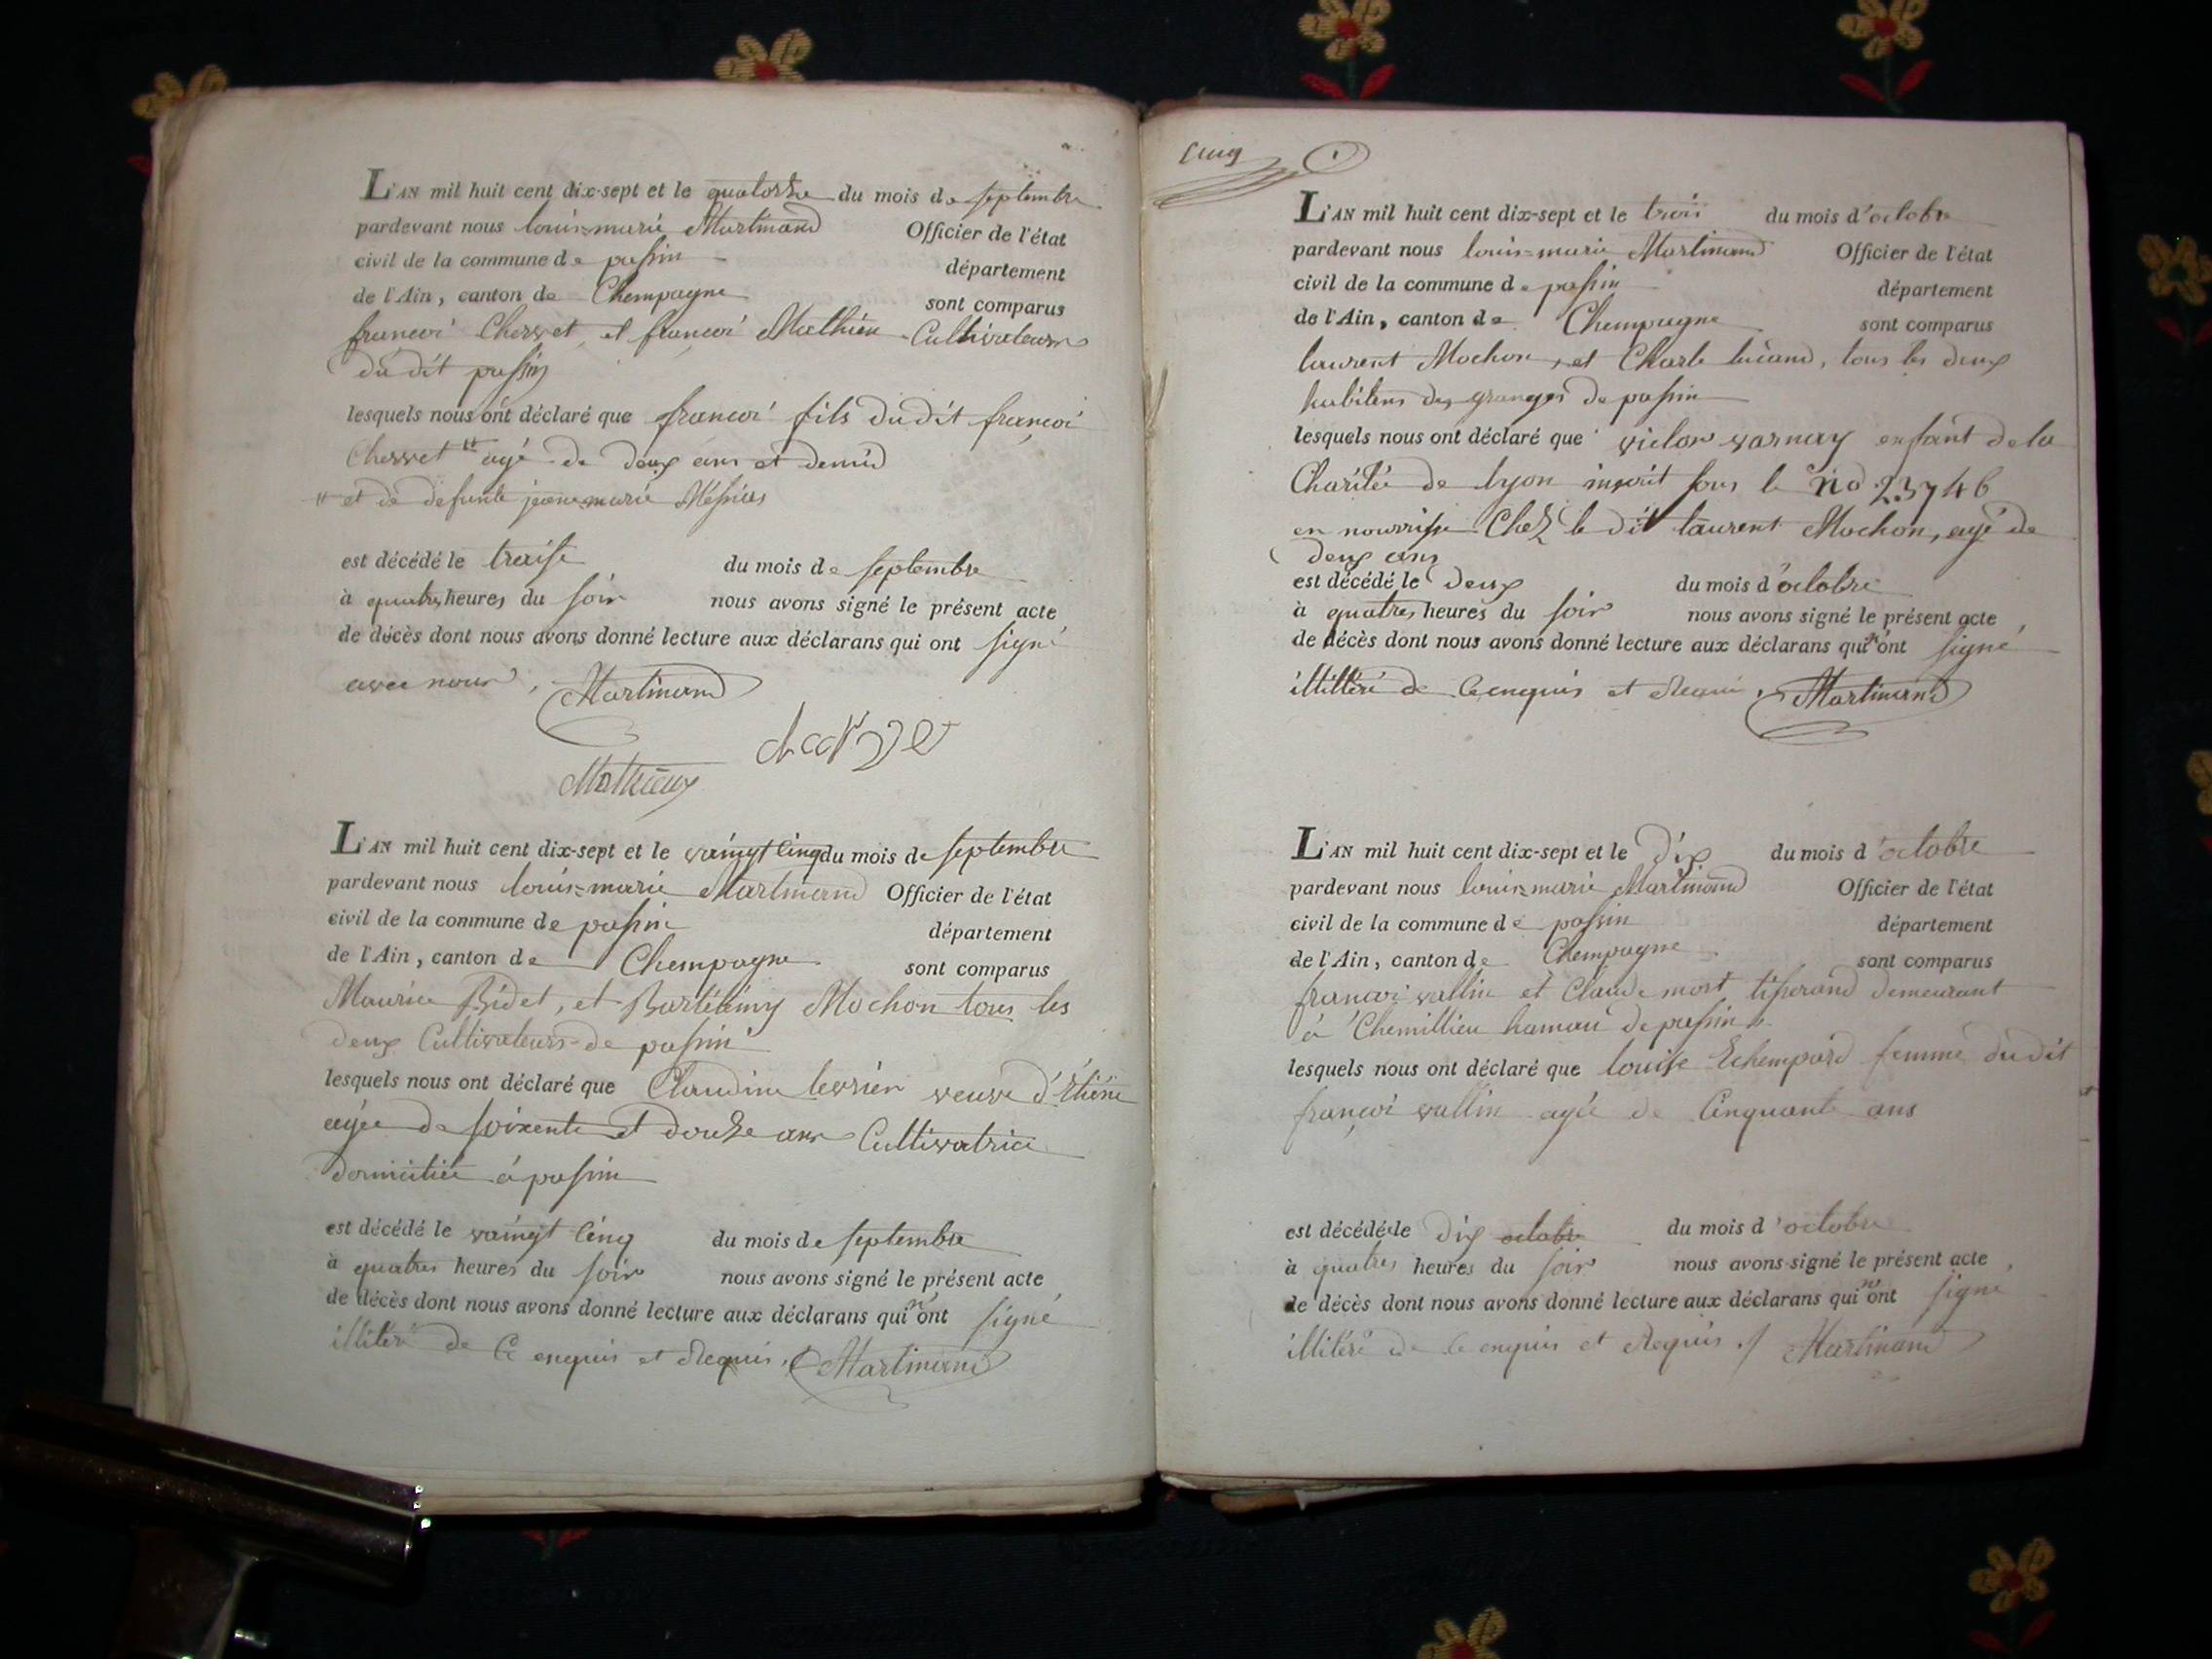 L'AN mil huit cent dix-sept et le quatorze du mois de septembre
pardevant nous louis=marie Martinand Officier de l'état
civil de la commune de passin département
de l'Ain, canton de Chempagne sont comparus
françoi Chervet et françoi Mathieu Cultivateurs
du dit passin
lesquels nous ont déclaré que françoi fils du dit françoi
Chervet agé de deux ans et demid
et de defunte jeanne marie
est décédé le traise du mois de septembre
à quatres heures du soir nous avons signé le présent acte
de décès dont nous avons donné lecture aux déclarans qui ont signé
avec nous, Martinand
Mathieux
L'AN mil huit cent dix-sept et le vaingt cinq du mois de septembre
pardevant nous louis=marie Martinand Officier de l'état
civil de la commune de passin département
de l'Ain, canton de Chempagne sont comparus
Maurice Bidet, et Bartélémy Mochon tous les
deux Cultivateurs de passin
lesquels nous ont déclaré que Claudine levrier veuve d'Etiene
agée de soixente et douze ans Cultivatrice
domiciliée à passin
est décédé le vaingt cinq du mois de septembre
à quatres heures du soir nous avons signé le présent acte
de décès dont nous avons donné lecture aux déclarans qui n'ont signé
illitéré de Ce enquis et Requis, Martinand
cinq
L'AN mil huit cent dix-sept et le trois du mois d'octobre
pardevant nous louis=marie Martinand Officier de l'état
civil de la commune de passin département
de l'Ain, canton de Chempagne sont comparus
laurent Mochon, et Charle lucand, tous les deux
habitens des granges de passin
lesquels nous ont déclaré que victor varnay enfant de la
Charitée de lyon inscrit sous le no 23746
en nourrisse Chez le dit laurent Mochon, agé de
deux ans
est décédé le deux du mois d'octobre
à quatres heures du soir nous avons signé le présent acte
de décès dont nous avons donné lecture aux déclarans qui n'ont signé
illittéré de Ce enquis et Requi, Martinand
L'AN mil huit cent dix-sept et le dix du mois d'octobre
pardevant nous louis=marie Martinand Officier de l'état
civil de la commune de passin département
de l'Ain, canton de Chempagne sont comparus
françoi vallin et Claude mort tisserand demeurant
à Chemillieu hamau de passin
lesquels nous ont déclaré que louise Echempard femme du dit
françoi vallin agée de Cinquante ans
est décédé le dix octobre du mois d'octobre
à quatres heures du soir nous avons signé le présent acte
de décès dont nous avons donné lecture aux déclarans qui n'ont signé
illitéré de Ce enquis et Requis ./ Martinand